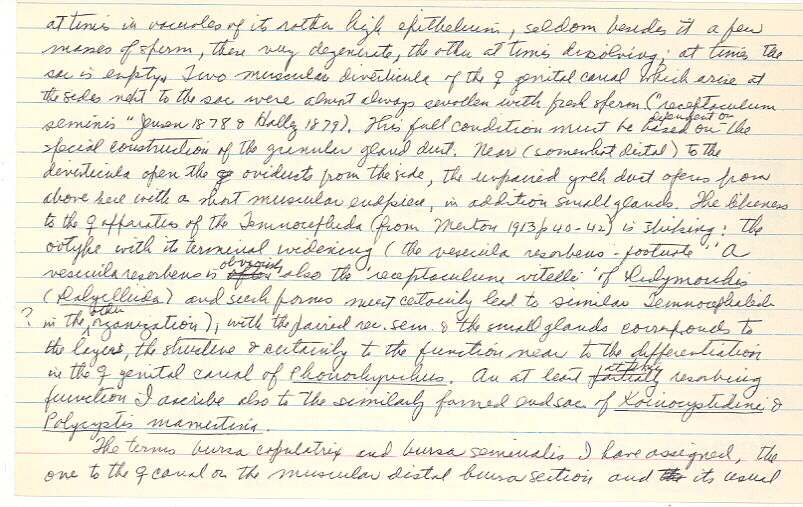 at times in vacuoles of its rather high epithelium, seldom besides it a few
masses of sperm, these very degenerate, the other at times dissolving; at times the
sac is empty. Two muscular diverticula of the ♀ genital canal which arise at
the sides next to the sac were almost always swollen with fresh sperm ("receptaculum
seminis" Jensen 1878 & Hallez 1879). This full condition must be based on dependent on the
special construction of the granular gland duct. Near (somewhat distal) to the
diverticula open the oviducts from the side, the unpaired yolk duct opens from
above here with a short muscular endpiece, in addition small glands. The likeness
to the ♀ apparatus of the Temnocephala (from Merton 1913 p 40-42) is striking: the
ootype with its terminal widening (the vesicula resorbens - footnote "A
vesicula resorbens is obviously also the 'receptaculum vitelli' of Didymorchis
(Dalyellida) and such forms must certainly lead to similar Temnocephalids
? in the other organization), with the paired rec. sem. & the small glands corresponds to
the layers, the structure & certainly to the function near to the differentiation
in the ♀ genital canal of Phonorhynchus. An at least partially resorbing
function I ascribe also to the similarly formed endsac of Koinocystidini &
Polycystis mamertina.
The terms bursa copulatrix and bursa seminalis I have assigned, the
one to the ♀ canal or the muscular distal bursa section and its usual